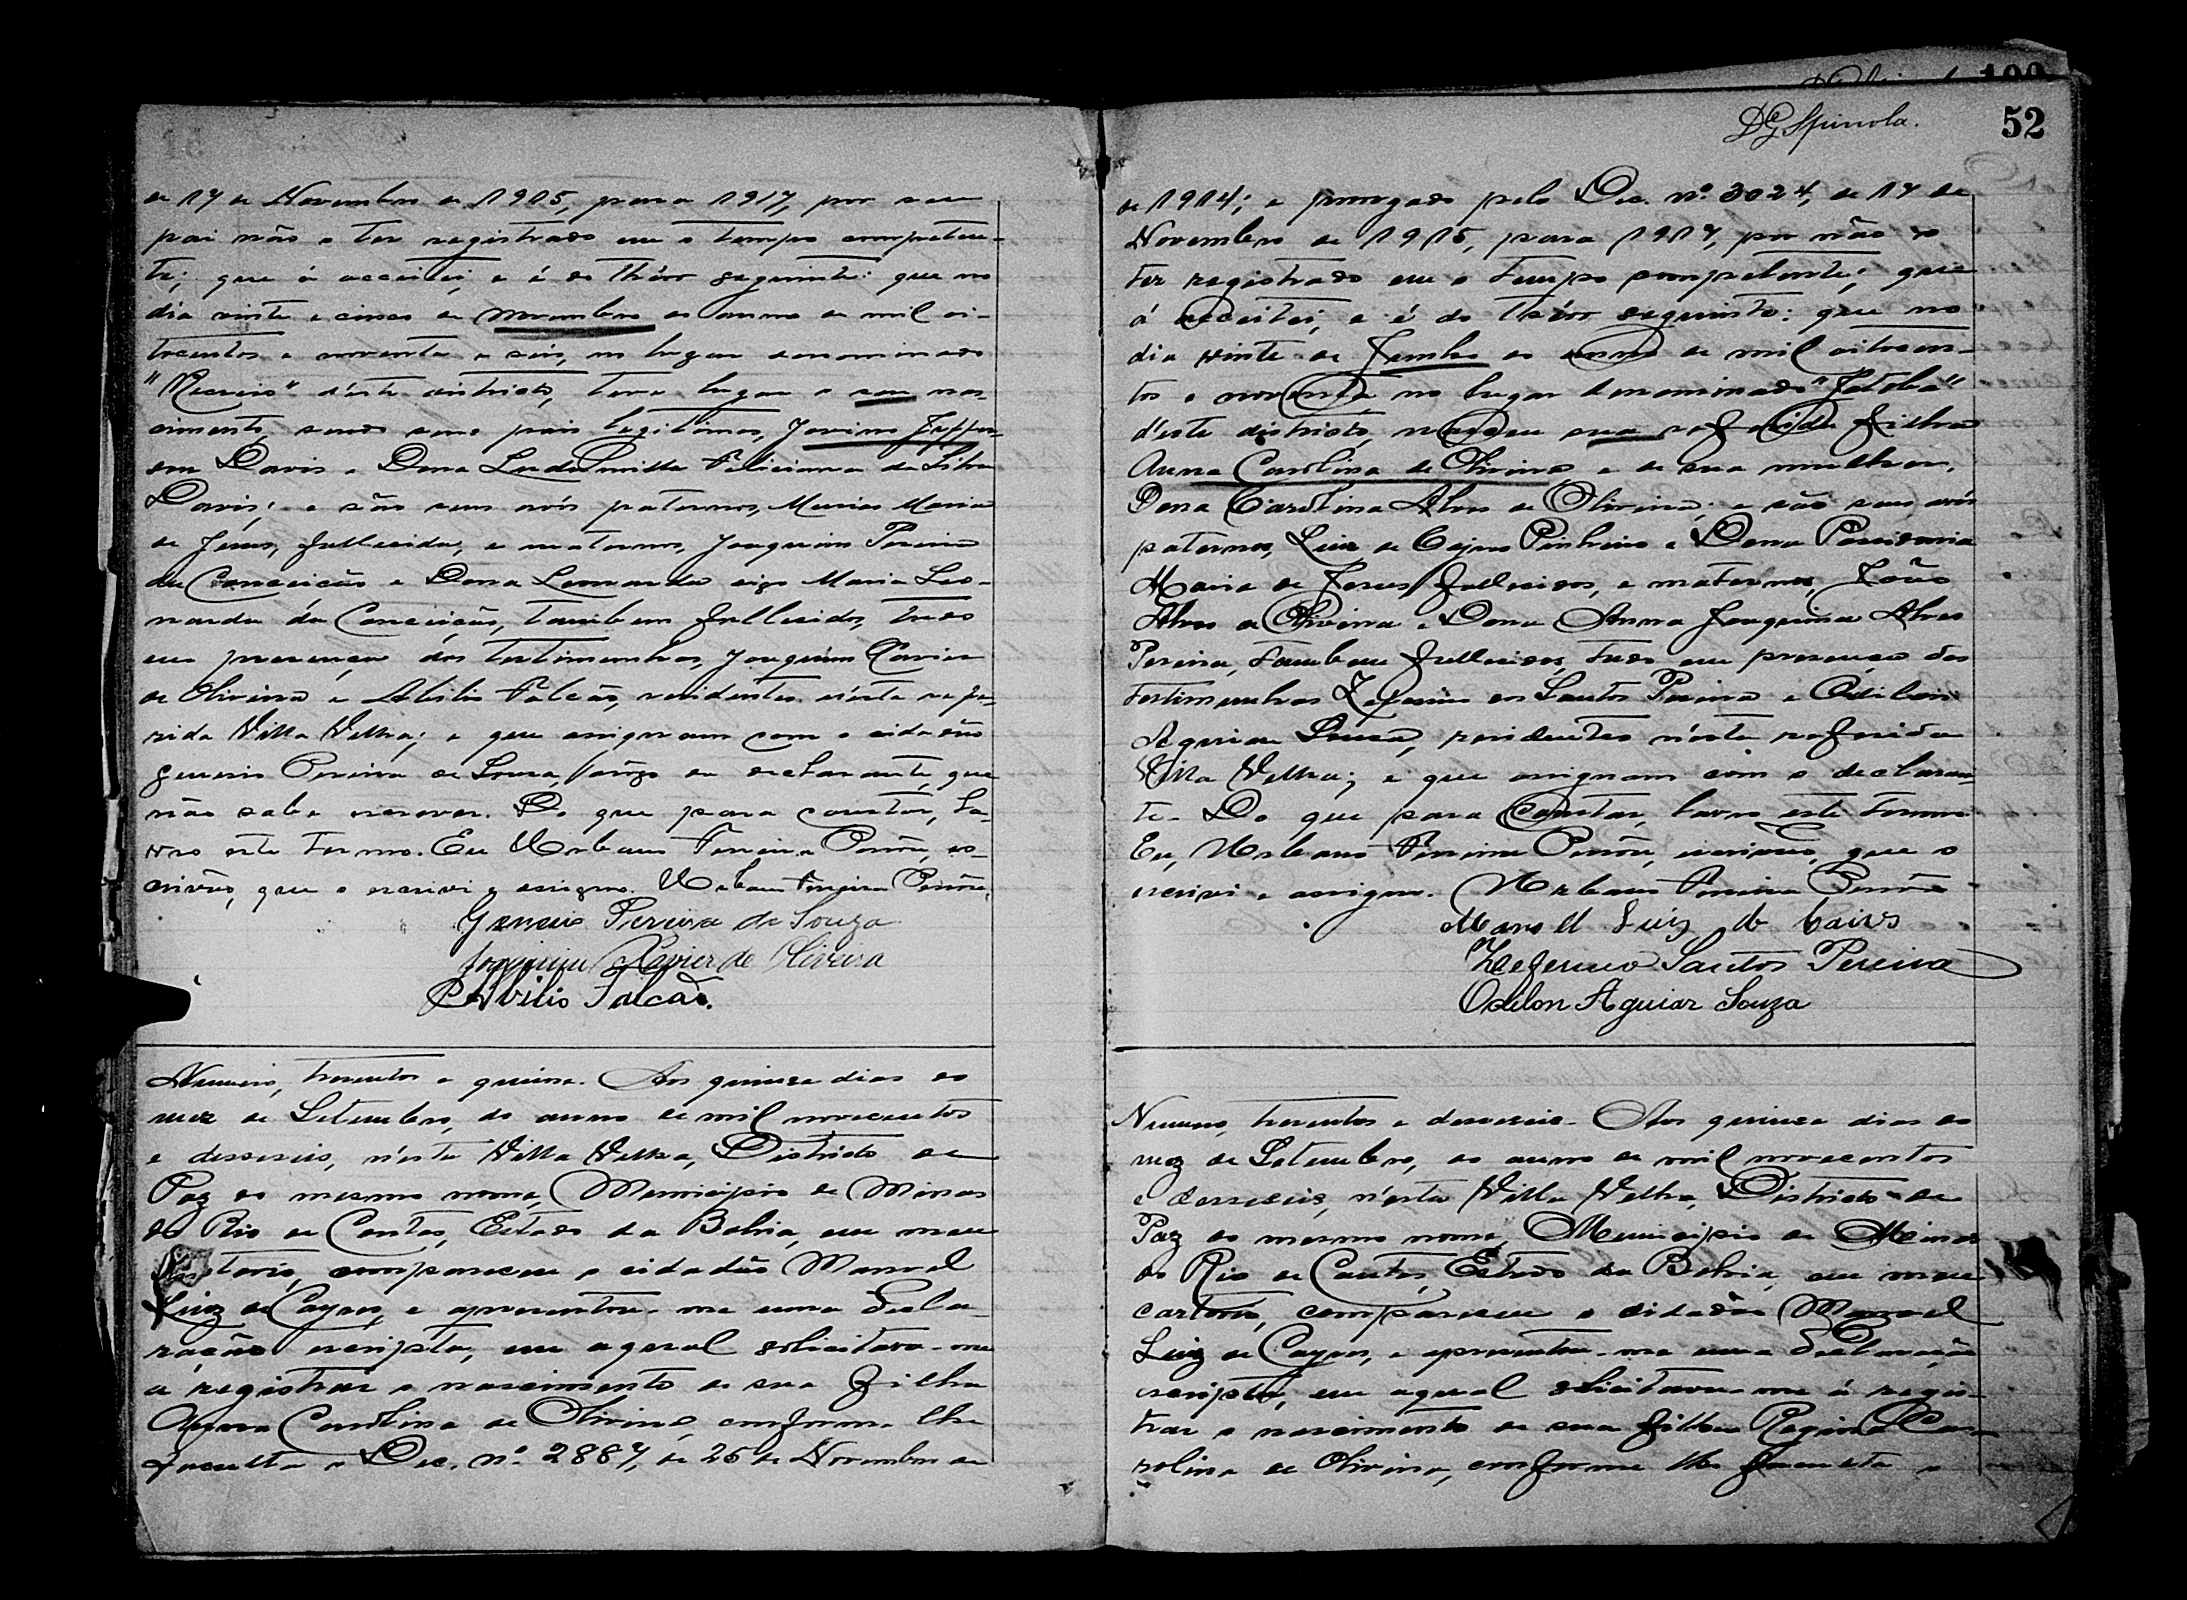 de 17 de Novembro de 1915, para 1917, por seu
pai não o ter registrado em o tempo competen-
te; que á acceitei, e é do théor seguinte: que no
dia vinte e cinco de Novembro do anno de mil oi-
tocentos e noventa e seis, no lugar denominado
"Recreio" d'éste districto, teve lugar o seu nas-
cimento, sendo seus pais legitimos, Jovino Jeffer-
son Davis e Dona Ludumilla Feliciana da Silva
Davis; e são seus avós paternos, Maria
de Jesus, fallecida, e maternos, Joaquim Pereira
da Conceição e Dona Leonarda digo Maria Leo-
narda da Conceição, tambem fallecidos, tudo
em presença das testimunhas, Joaquim Xavier
de Oliveira e Abilio Falcão, residentes n'ésta refe-
rida Villa Velha; e que assignam com o cidadão
Genesio Pereira de Souza, á rôgo da declarante, que
não sabe escrever. Do que para constar, la-
vro este termo. Eu Urbano Ferreira , es-
crivão, que o escrevi e assigno. Urbano Ferreira
Genesio Pereira de Souza
Joaquim Xavier de Oliveira
Abilio Falcão.
Numero, trezentos e quinze. Aos quinze dias do
mez de Setembro, do anno de mil novecentos
e desseseis, n'ésta Villa Velha, Districto de
Paz do mesmo nome, Municipio de Minas
do Rio de Contas, Estado da Bahia, em meu
Cartorio, compareceu o cidadão Manoel
Luiz de Cayres, e apresentou-me uma decla-
ração escripta, em aqual solicitava-me
a registrar o nascimento de sua filha
Anna Carolina de Oliveira, conforme lhe
faculta o Dec. nº 2887, de 25 de Novembro de
DG Spinola.
52
de 1914; e prorogado pelo Dec. nº 3024, de 17 de
Novembro de 1915, para 1917, por não o
ter registrado em o tempo competente; que
á acceitei, e é do théor seguinte: que no
dia vinte de Junho do anno de mil oitocen-
tos e noventa, no lugar denominado "Jatobá"
d'éste districto, nasceu sua referida filha
Anna Carolina de Oliveira e de sua mulher,
Dona Carolina Alves de Oliveira; e são seus avós
paternos, Luiz de Cayres Pinheiro e Dona
Maria de Jesus, fallecidos, e maternos, João
Alves de Oliveira e Dona Anna Joaquina Alves
Pereira, tambem fallecidos, tudo em presença das
testimunhas Zeferino dos Santos Pereira e Odilon
Aguiar Souza, residentes n'ésta referida
Villa Velha; e que assignam com o declaran-
te. Do que para constar, lavro este termo
Eu, Urbano Ferreira , escrivão, que o
escrevi e assigno. Urbano Ferreira
Manoel Luiz de Cairs
Zeferino Santos Pereira
Odilon Aguiar Souza
Numero, trezentos e desseseis. Aos quinze dias do
mez de Setembro, do anno de mil novecentos
e desseseis, n'ésta Villa Velha, Districto de
Paz do mesmo nome, Municipio de Minas
do Rio de Contas, Estado da Bahia, em meu
cartorio, compareceu o cidadão Manoel
Luiz de Cayres, e apresentou-me uma declaração
escripta, em aqual solicitava-me á regis-
trar o nascimento de sua filha Regina Ca-
rolina de Oliveira, conforme lhe faculta o